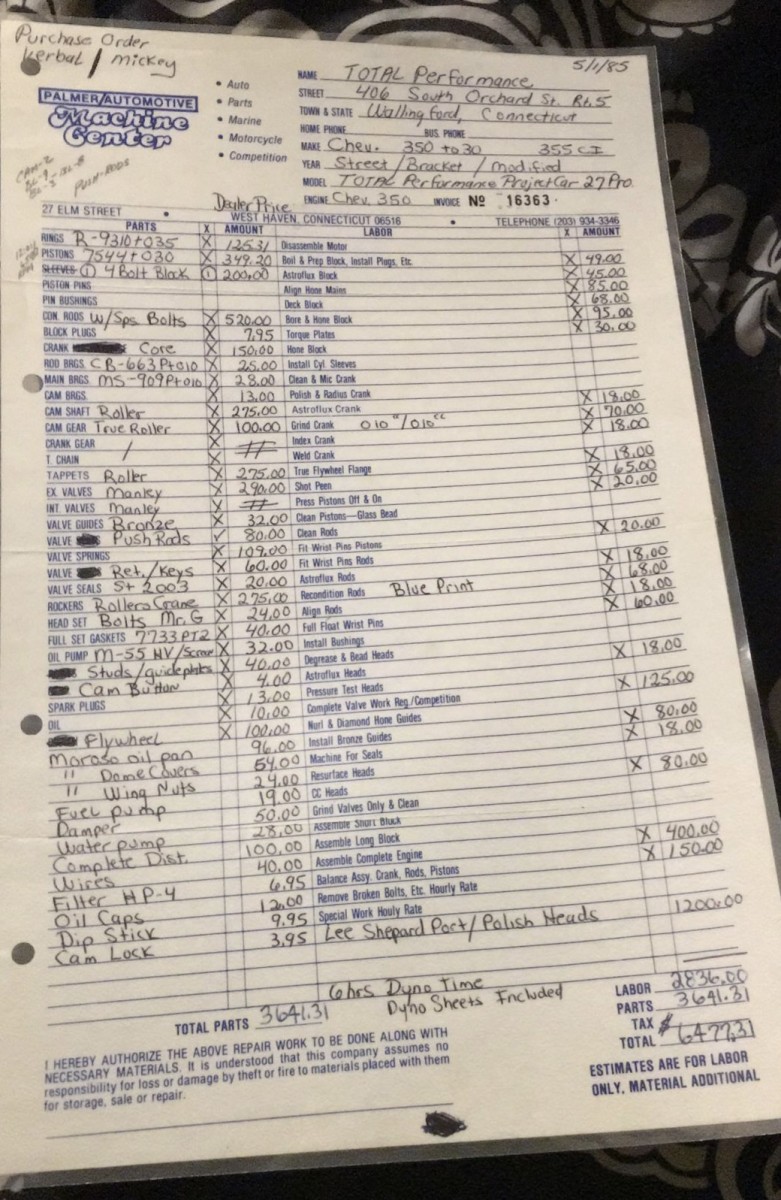 Purchase Order
Kerbal / Mickey
5/1/85
PALMER/AUTOMOTIVE
Machine
Center
• Auto
• Parts
• Marine
• Motorcycle
• Competition
NAME TOTAL Performance
STREET 406 South Orchard St. Rt. 5
TOWN & STATE Wallingford, Connecticut
HOME PHONE BUS. PHONE
MAKE Chev. 350 to 30 355 CI
YEAR Street / Bracket / Modified
MODEL TOTAL Performance Project Car 27 Pro
ENGINE Chev. 350 INVOICE No 16363
Push-Rods
Dealer Price
27 ELM STREET • WEST HAVEN, CONNECTICUT 06516 • TELEPHONE (203) 934-3346
PARTS X AMOUNT LABOR X AMOUNT
RINGS R-9310+035 X 125.31 Disassemble Motor
PISTONS 7544+030 X 349.20 Boil & Prep Block, Install Plugs, Etc. X 49.00
SLEEVES ① 4 Bolt Block ① 200.00 Astroflux Block X 45.00
PISTON PINS Align Hone Mains X 85.00
PIN BUSHINGS Deck Block X 68.00
CON. RODS W/Sps Bolts X 520.00 Bore & Hone Block X 95.00
BLOCK PLUGS X 7.95 Torque Plates X 30.00
CRANK Core X 150.00 Hone Block
ROD BRGS. CB-663P+010 X 25.00 Install Cyl. Sleeves
MAIN BRGS MS-909P+010 X 28.00 Clean & Mic Crank
CAM BRGS. X 13.00 Polish & Radius Crank
CAM SHAFT Roller X 275.00 Astroflux Crank X 18.00
CAM GEAR True Roller X 100.00 Grind Crank 010"/010" X 70.00
CRANK GEAR X Index Crank X 18.00
T. CHAIN / X Weld Crank
TAPPETS Roller X 275.00 True Flywheel Flange X 18.00
EX. VALVES Manley X 290.00 Shot Peen X 65.00
INT. VALVES Manley X Press Pistons Off & On X 20.00
VALVE GUIDES Bronze X 32.00 Clean Pistons—Glass Bead
VALVE Push Rods ✓ 80.00 Clean Rods
VALVE SPRINGS X 109.00 Fit Wrist Pins Pistons X 20.00
VALVE Ret./Keys X 60.00 Fit Wrist Pins Rods
VALVE SEALS St 2003 X 20.00 Astroflux Rods X 18.00
ROCKERS Rollers Crane X 275.00 Recondition Rods Blue Print X 68.00
HEAD SET Bolts Mr. G X 24.00 Align Rods X 18.00
FULL SET GASKETS 7733PT2 X 40.00 Full Float Wrist Pins X 60.00
OIL PUMP M-55 HV/Screw X 32.00 Install Bushings
Studs/guideplates X 40.00 Degrease & Bead Heads
Cam Button X 4.00 Astroflux Heads X 18.00
SPARK PLUGS X 13.00 Pressure Test Heads
OIL X 10.00 Complete Valve Work Reg./Competition X 125.00
Flywheel X 100.00 Nurl & Diamond Hone Guides
Moroso oil pan 96.00 Install Bronze Guides X 80.00
" Dome Covers 54.00 Machine For Seals X 18.00
" Wing Nuts 24.00 Resurface Heads
Fuel pump 19.00 CC Heads X 80.00
Damper 50.00 Grind Valves Only & Clean
Water pump 28.00 Assemble Short Block
Complete Dist. 100.00 Assemble Long Block
Wires 40.00 Assemble Complete Engine X 400.00
Filter HP-4 6.95 Balance Assy. Crank, Rods, Pistons X 150.00
Oil Caps 12.00 Remove Broken Bolts, Etc. Hourly Rate
Dip Stick 9.95 Special Work Houly Rate
Cam Lock 3.95 Lee Shepard Port/Polish Heads 1200.00
6 hrs Dyno Time
Dyno Sheets Included
TOTAL PARTS 3641.31
LABOR 2836.00
PARTS 3641.31
TAX
TOTAL $6477.31
I HEREBY AUTHORIZE THE ABOVE REPAIR WORK TO BE DONE ALONG WITH
NECESSARY MATERIALS. It is understood that this company assumes no
responsibility for loss or damage by theft or fire to materials placed with them
for storage, sale or repair.
ESTIMATES ARE FOR LABOR
ONLY, MATERIAL ADDITIONAL